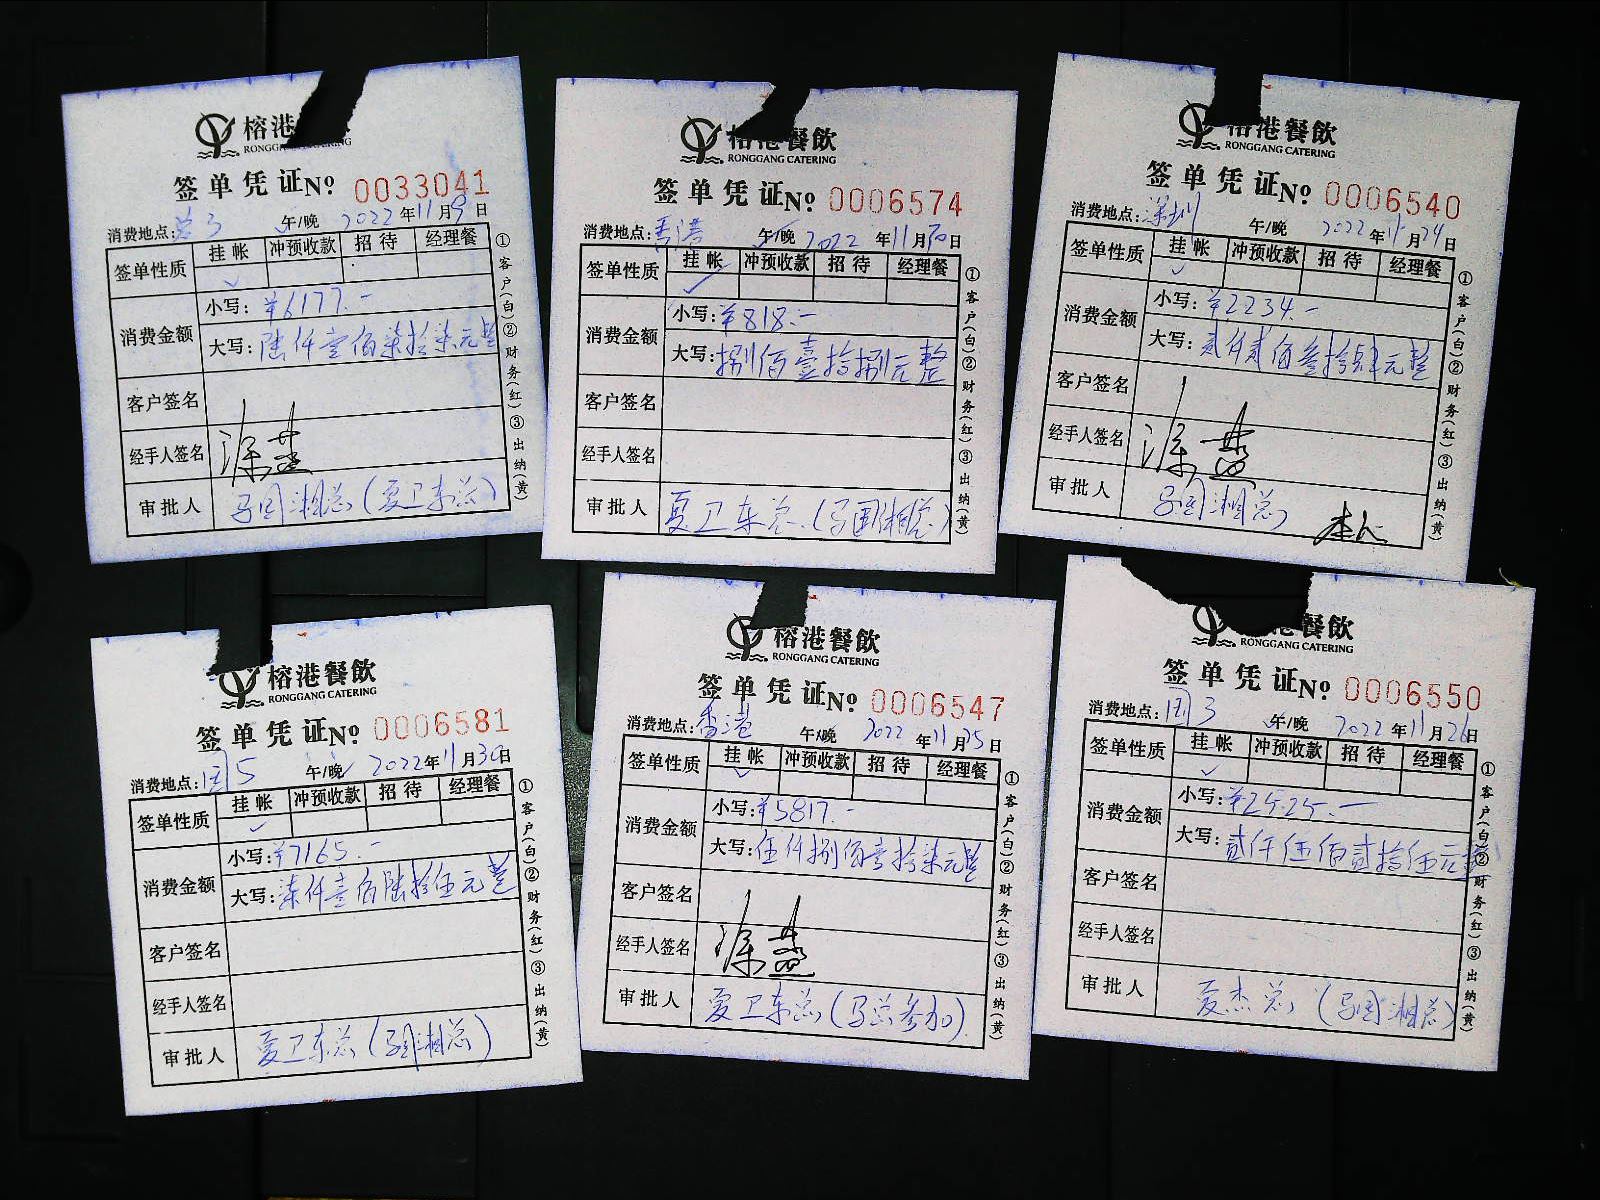 榕港
RONGGANG CATERING
签单凭证 No. 0033041
消费地点: 总3 午/晚 2022年11月9日
签单性质 挂帐 冲预收款 招待 经理餐
✓
消费金额 小写: ¥6177.-
大写: 陆仟壹佰柒拾柒元整
客户签名
经手人签名 涂燕
审批人 马国湘总(夏卫东总)
①客户(白)②财务(红)③出纳(黄)
榕港餐飲
RONGGANG CATERING
签单凭证 No. 0006574
消费地点: 香港 午/晚 2022年11月30日
签单性质 挂帐 冲预收款 招待 经理餐
✓
消费金额 小写: ¥818.-
大写: 捌佰壹拾捌元整
客户签名
经手人签名
审批人 夏卫东总(马国湘总)
①客户(白)②财务(红)③出纳(黄)
榕港餐飲
RONGGANG CATERING
签单凭证 No. 0006540
消费地点: 深圳 午/晚 2022年11月24日
签单性质 挂帐 冲预收款 招待 经理餐
✓
消费金额 小写: ¥2234.-
大写: 贰仟贰佰叁拾肆元整
客户签名
经手人签名 涂燕
审批人 马国湘总
①客户(白)②财务(红)③出纳(黄)
榕港餐飲
RONGGANG CATERING
签单凭证 No. 0006581
消费地点: 国5 午/晚 2022年11月30日
签单性质 挂帐 冲预收款 招待 经理餐
✓
消费金额 小写: ¥7165.-
大写: 柒仟壹佰陆拾伍元整
客户签名
经手人签名
审批人 夏卫东总(马国湘总)
①客户(白)②财务(红)③出纳(黄)
榕港餐飲
RONGGANG CATERING
签单凭证 No. 0006547
消费地点: 香港 午/晚 2022年11月25日
签单性质 挂帐 冲预收款 招待 经理餐
✓
消费金额 小写: ¥5817.-
大写: 伍仟捌佰壹拾柒元整
客户签名
经手人签名 涂燕
审批人 夏卫东总(马总参加)
①客户(白)②财务(红)③出纳(黄)
港餐飲
RONGGANG CATERING
签单凭证 No. 0006550
消费地点: 国3 午/晚 2022年11月26日
签单性质 挂帐 冲预收款 招待 经理餐
✓
消费金额 小写: ¥2525.-
大写: 贰仟伍佰贰拾伍元整
客户签名
经手人签名
审批人 夏杰总(马国湘总)
①客户(白)②财务(红)③出纳(黄)